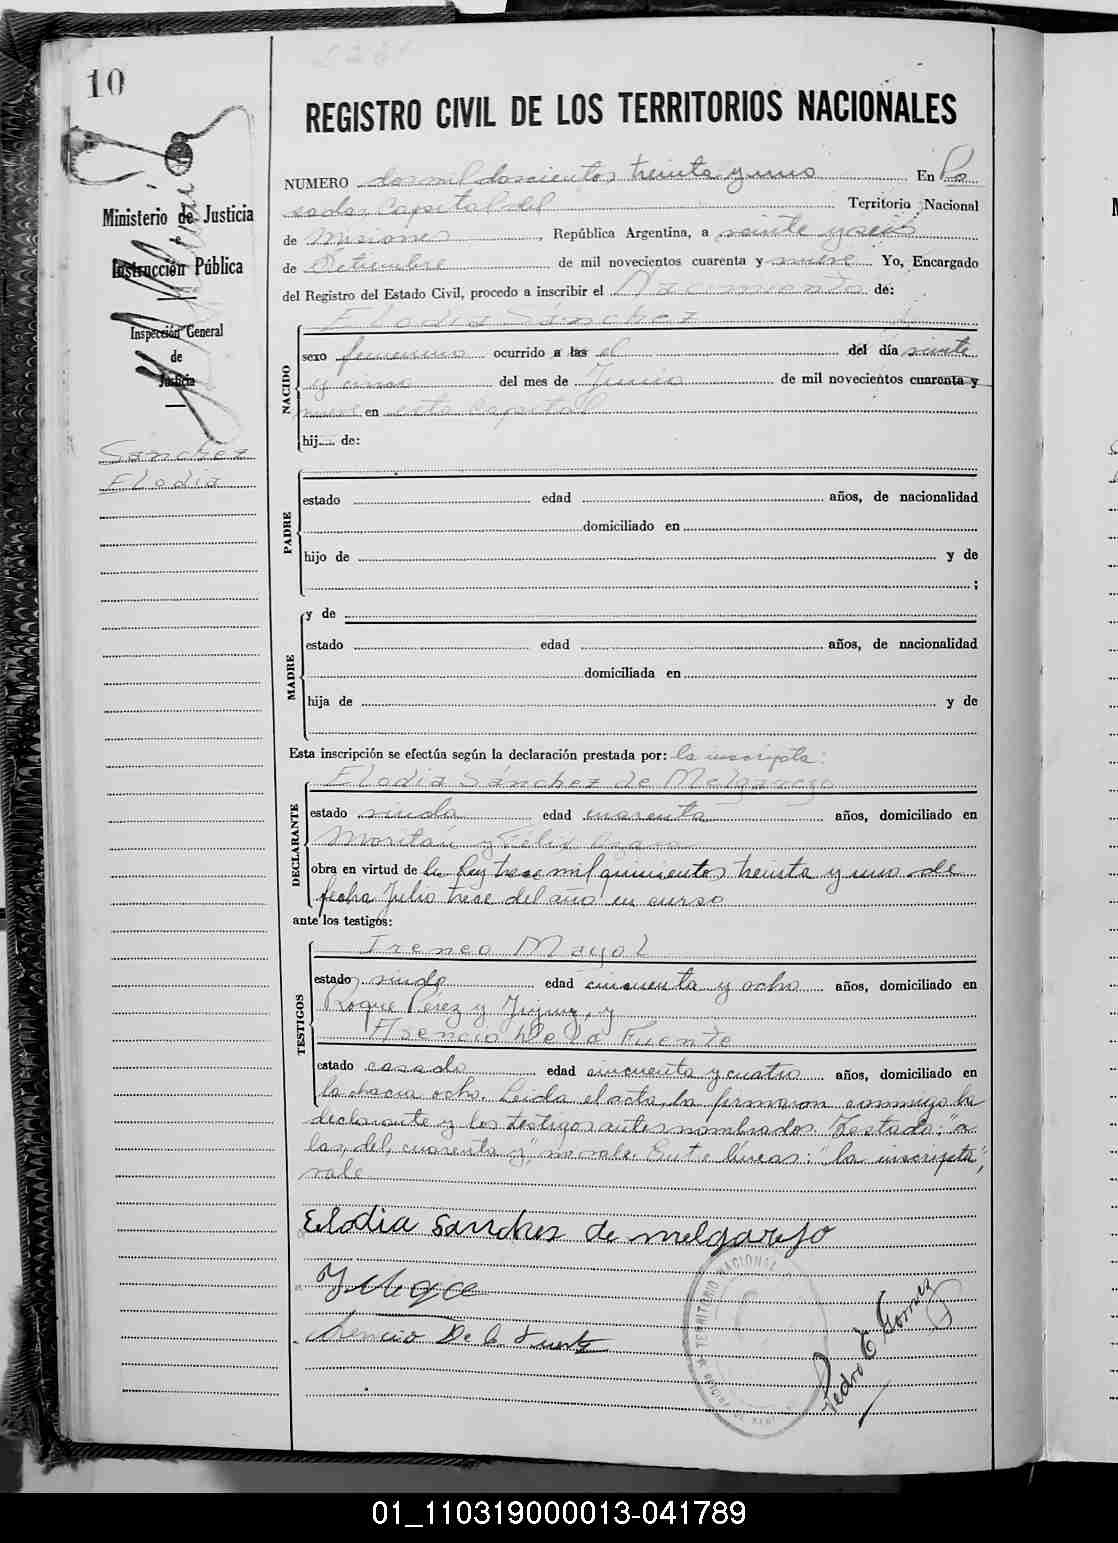 10
REGISTRO CIVIL DE LOS TERRITORIOS NACIONALES
NUMERO dos mil doscientos treinta y uno En Po
sadas, Capital del Territorio Nacional
de Misiones, República Argentina, a veinte y seis
de Setiembre de mil novecientos cuarenta y nueve Yo, Encargado
del Registro del Estado Civil, procedo a inscribir el Nacimiento de:
Ministerio de Justicia
Instrucción Pública
Inspección General
de
Justicia
Sánchez
Elodia
NACIDO
Elodia Sánchez
sexo femenino ocurrido a las el del día veinte
y cinco del mes de Junio de mil novecientos cuarenta y
nueve en esta Capital
hij..... de:
PADRE
estado edad años, de nacionalidad
domiciliado en
hijo de y de
;
MADRE
y de
estado edad años, de nacionalidad
domiciliada en
hija de y de
Esta inscripción se efectúa según la declaración prestada por: la inscripta:
DECLARANTE
Elodia Sánchez de Melgarejo
estado viuda edad cuarenta años, domiciliado en
Moritán y Félix Azara
obra en virtud de la Ley trece mil quinientos treinta y uno de
fecha Julio trece del año en curso
ante los testigos:
TESTIGOS
Ireneo Mayol
estado viudo edad cincuenta y ocho años, domiciliado en
Roque Pérez y Jujuy, y
Asencio De la Fuente
estado casado edad cincuenta y cuatro años, domiciliado en
la chacra ocho. Leida el acta, la firmaron conmigo la
declarante y los testigos antes nombrados. Testado: "a
las, del, cuarenta y", no vale. Entre líneas: "la inscripta",
vale
Elodia Sanches de melgarejo
Asencio De la Fuente
TERRITORIO NACIONAL
Pedro E Gomez
01_110319000013-041789